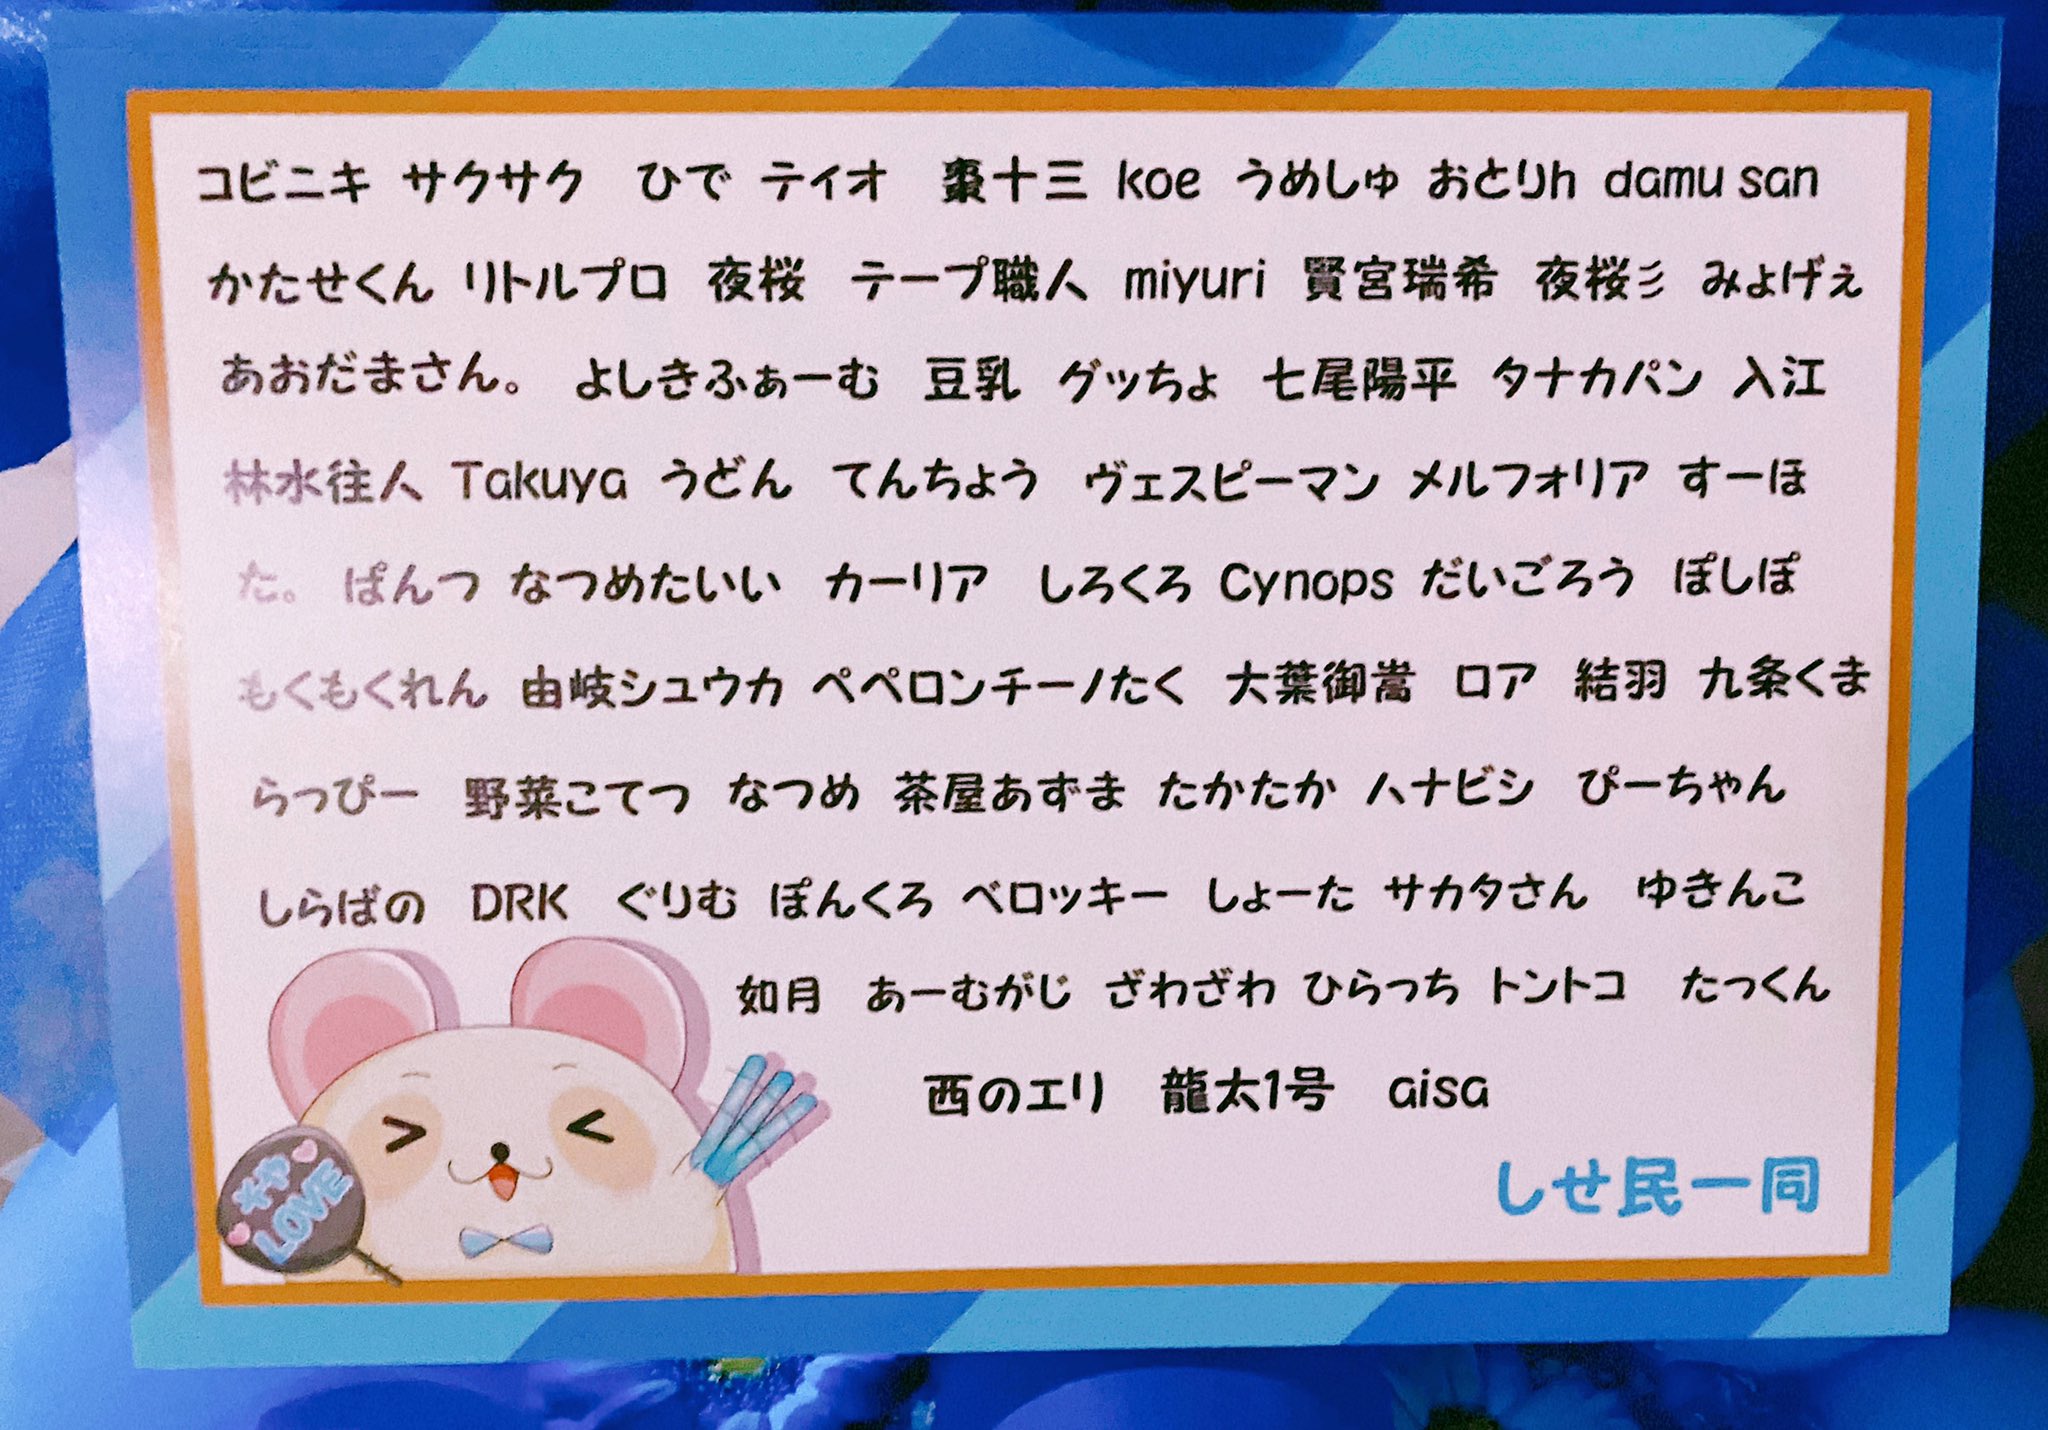 コビニキ サクサク ひで ティオ 棗十三 koe うめしゅ おとりh damu san
かたせくん リトルプロ 夜桜 テープ職人 miyuri 賢宮瑞希 夜桜彡 みよげぇ
あおだまさん。 よしきふぁーむ 豆乳 グッちょ 七尾陽平 タナカパン 入江
林水往人 Takuya うどん てんちょう ヴェスピーマン メルフォリア すーほ
た。 ぱんつ なつめたいい カーリア しろくろ Cynops だいごろう ぽしぽ
もくもくれん 由岐シュウカ ペペロンチーノたく 大葉御嵩 ロア 結羽 九条くま
らっぴー 野菜こてつ なつめ 茶屋あずま たかたか ハナビシ ぴーちゃん
しらばの DRK ぐりむ ぽんくろ ベロッキー しょーた サカタさん ゆきんこ
如月 あーむがじ ざわざわ ひらっち トントコ たっくん
西のエリ 龍太1号 aisa
しせ民一同
LOVE